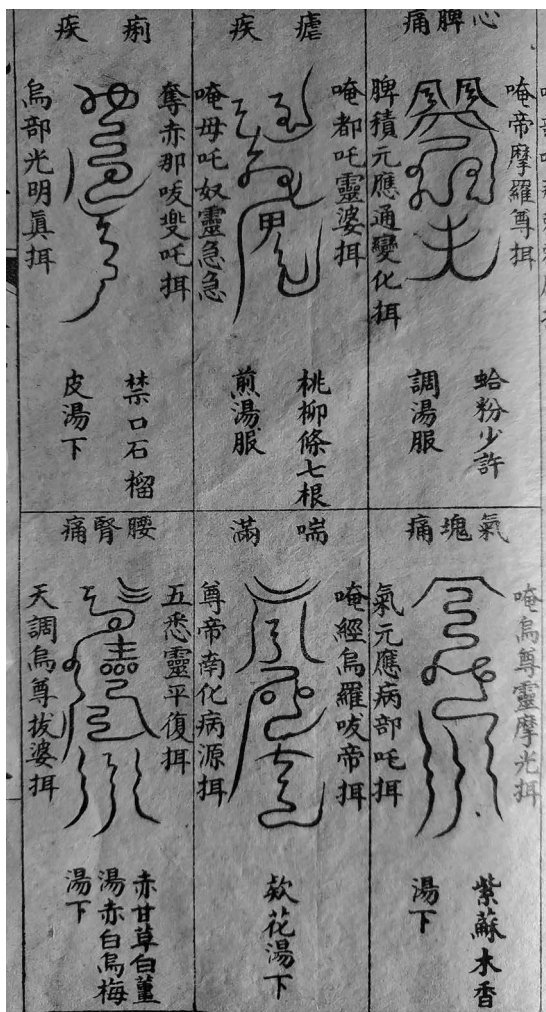 心脾痛
唵帝摩羅尊挕
脾積元應通變化挕
蛤粉少許
調湯服
瘧疾
唵都吒靈婆挕
唵母吒奴靈急急
桃柳條七根
煎湯服
痢疾
奪赤那呅㜪吒挕
烏部光明眞挕
禁口石榴
皮湯下
氣塊痛
唵烏尊靈摩光挕
氣元應病部吒挕
紫蘇木香
湯下
喘滿
唵經烏羅呅帝挕
尊帝南化病源挕
欵花湯下
腰腎痛
五悉靈平復挕
天調烏尊拔婆挕
赤甘草白薑
湯赤白烏梅
湯下